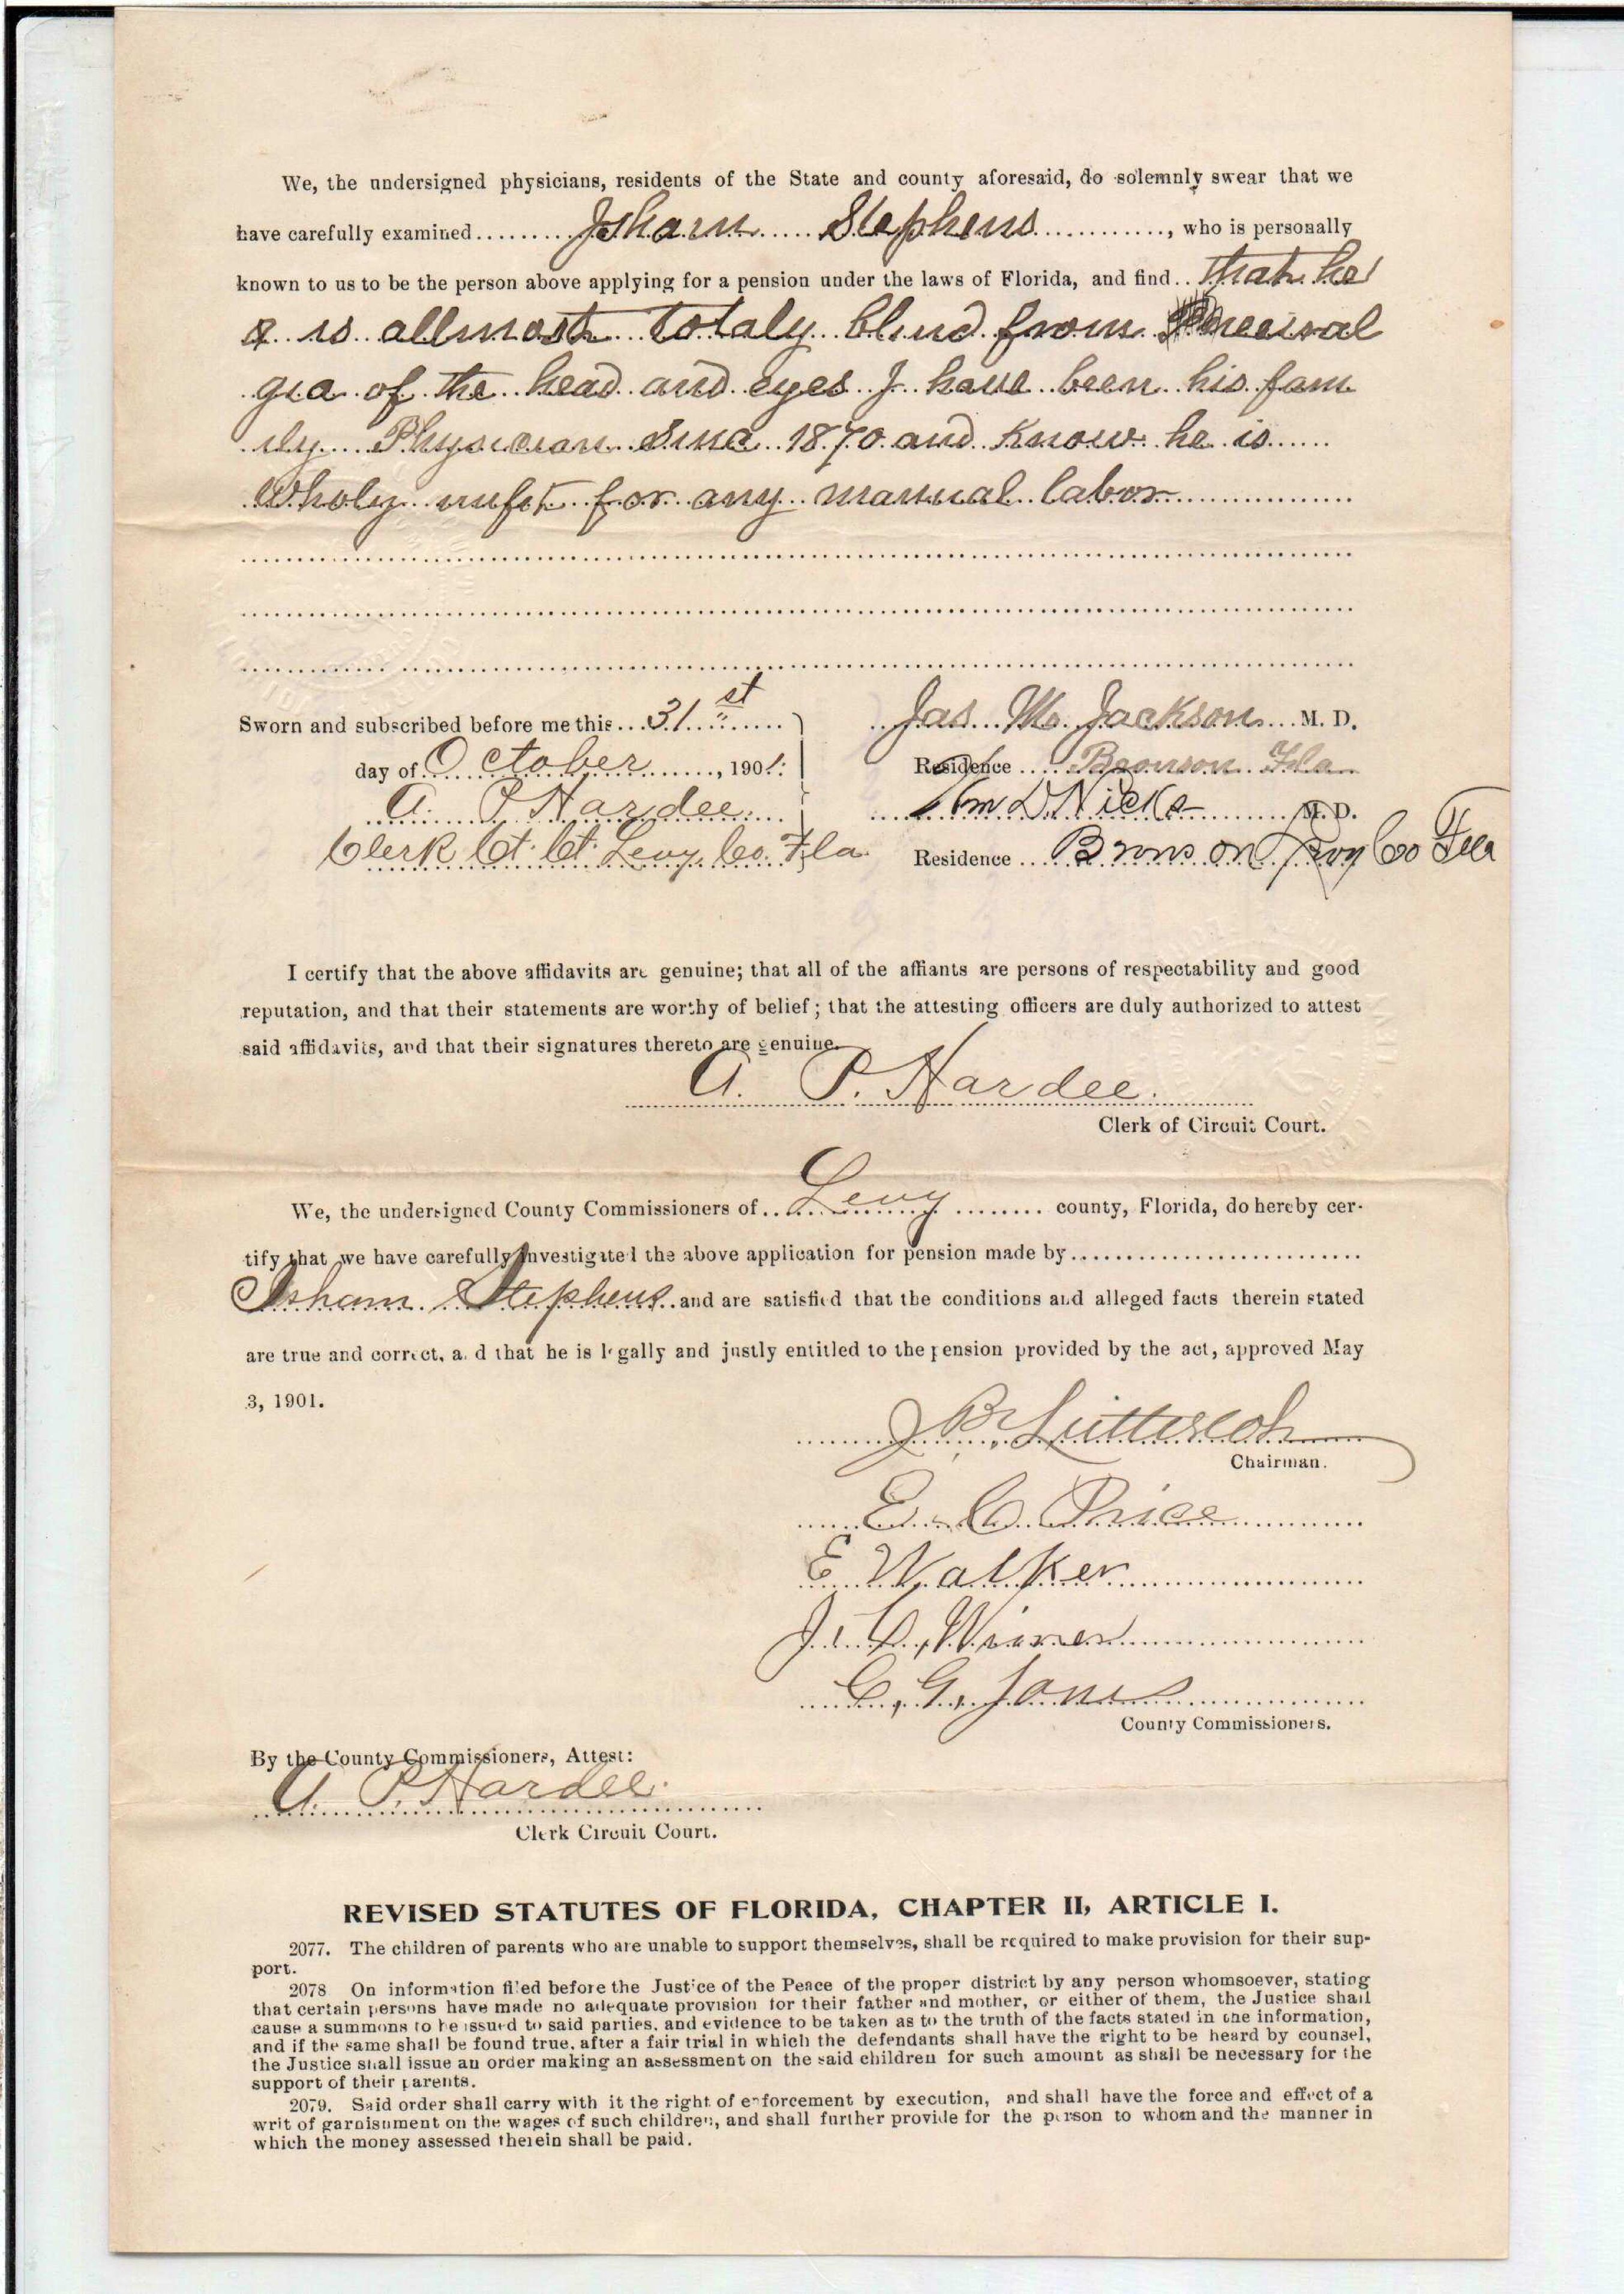 We, the undersigned physicians, residents of the State and county aforesaid, do solemnly swear that we
have carefully examined Isham Stephens, who is personally
known to us to be the person above applying for a pension under the laws of Florida, and find that he
is allmost totaly blind from neeural
gia of the head and eyes I have been his fam
ily Physician Sinc 1870 and Know he is
Wholy unfit for any manual labor
Sworn and subscribed before me this 31st
day of October, 1901.
A. P. Hardee
Clerk Ct. Ct. Levy Co. Fla
Jas. M. Jackson M. D.
Residence Bronson Fla
Wm D Nicks M. D.
Residence Bronson Levy Co Fla
I certify that the above affidavits are genuine; that all of the affiants are persons of respectability and good
reputation, and that their statements are worthy of belief; that the attesting officers are duly authorized to attest
said affidavits, and that their signatures thereto are genuine.
A. P. Hardee.
Clerk of Circuit Court.
We, the undersigned County Commissioners of Levy county, Florida, do hereby cer-
tify that we have carefully investigated the above application for pension made by
Isham Stephens and are satisfied that the conditions and alleged facts therein stated
are true and correct, and that he is legally and justly entitled to the pension provided by the act, approved May
3, 1901.
J B Lutterloh
Chairman.
E. C. Price
E Walker
J. C.
C. G. Jones
County Commissioners.
By the County Commissioners, Attest:
A. P. Hardee.
Clerk Circuit Court.
REVISED STATUTES OF FLORIDA, CHAPTER II, ARTICLE I.
2077. The children of parents who are unable to support themselves, shall be required to make provision for their sup-
port.
2078 On information filed before the Justice of the Peace of the proper district by any person whomsoever, stating
that certain persons have made no adequate provision for their father and mother, or either of them, the Justice shall
cause a summons to be issued to said parties, and evidence to be taken as to the truth of the facts stated in the information,
and if the same shall be found true, after a fair trial in which the defendants shall have the right to be heard by counsel,
the Justice shall issue an order making an assessment on the said children for such amount as shall be necessary for the
support of their parents.
2079. Said order shall carry with it the right of enforcement by execution, and shall have the force and effect of a
writ of garnishment on the wages of such children, and shall further provide for the person to whom and the manner in
which the money assessed therein shall be paid.